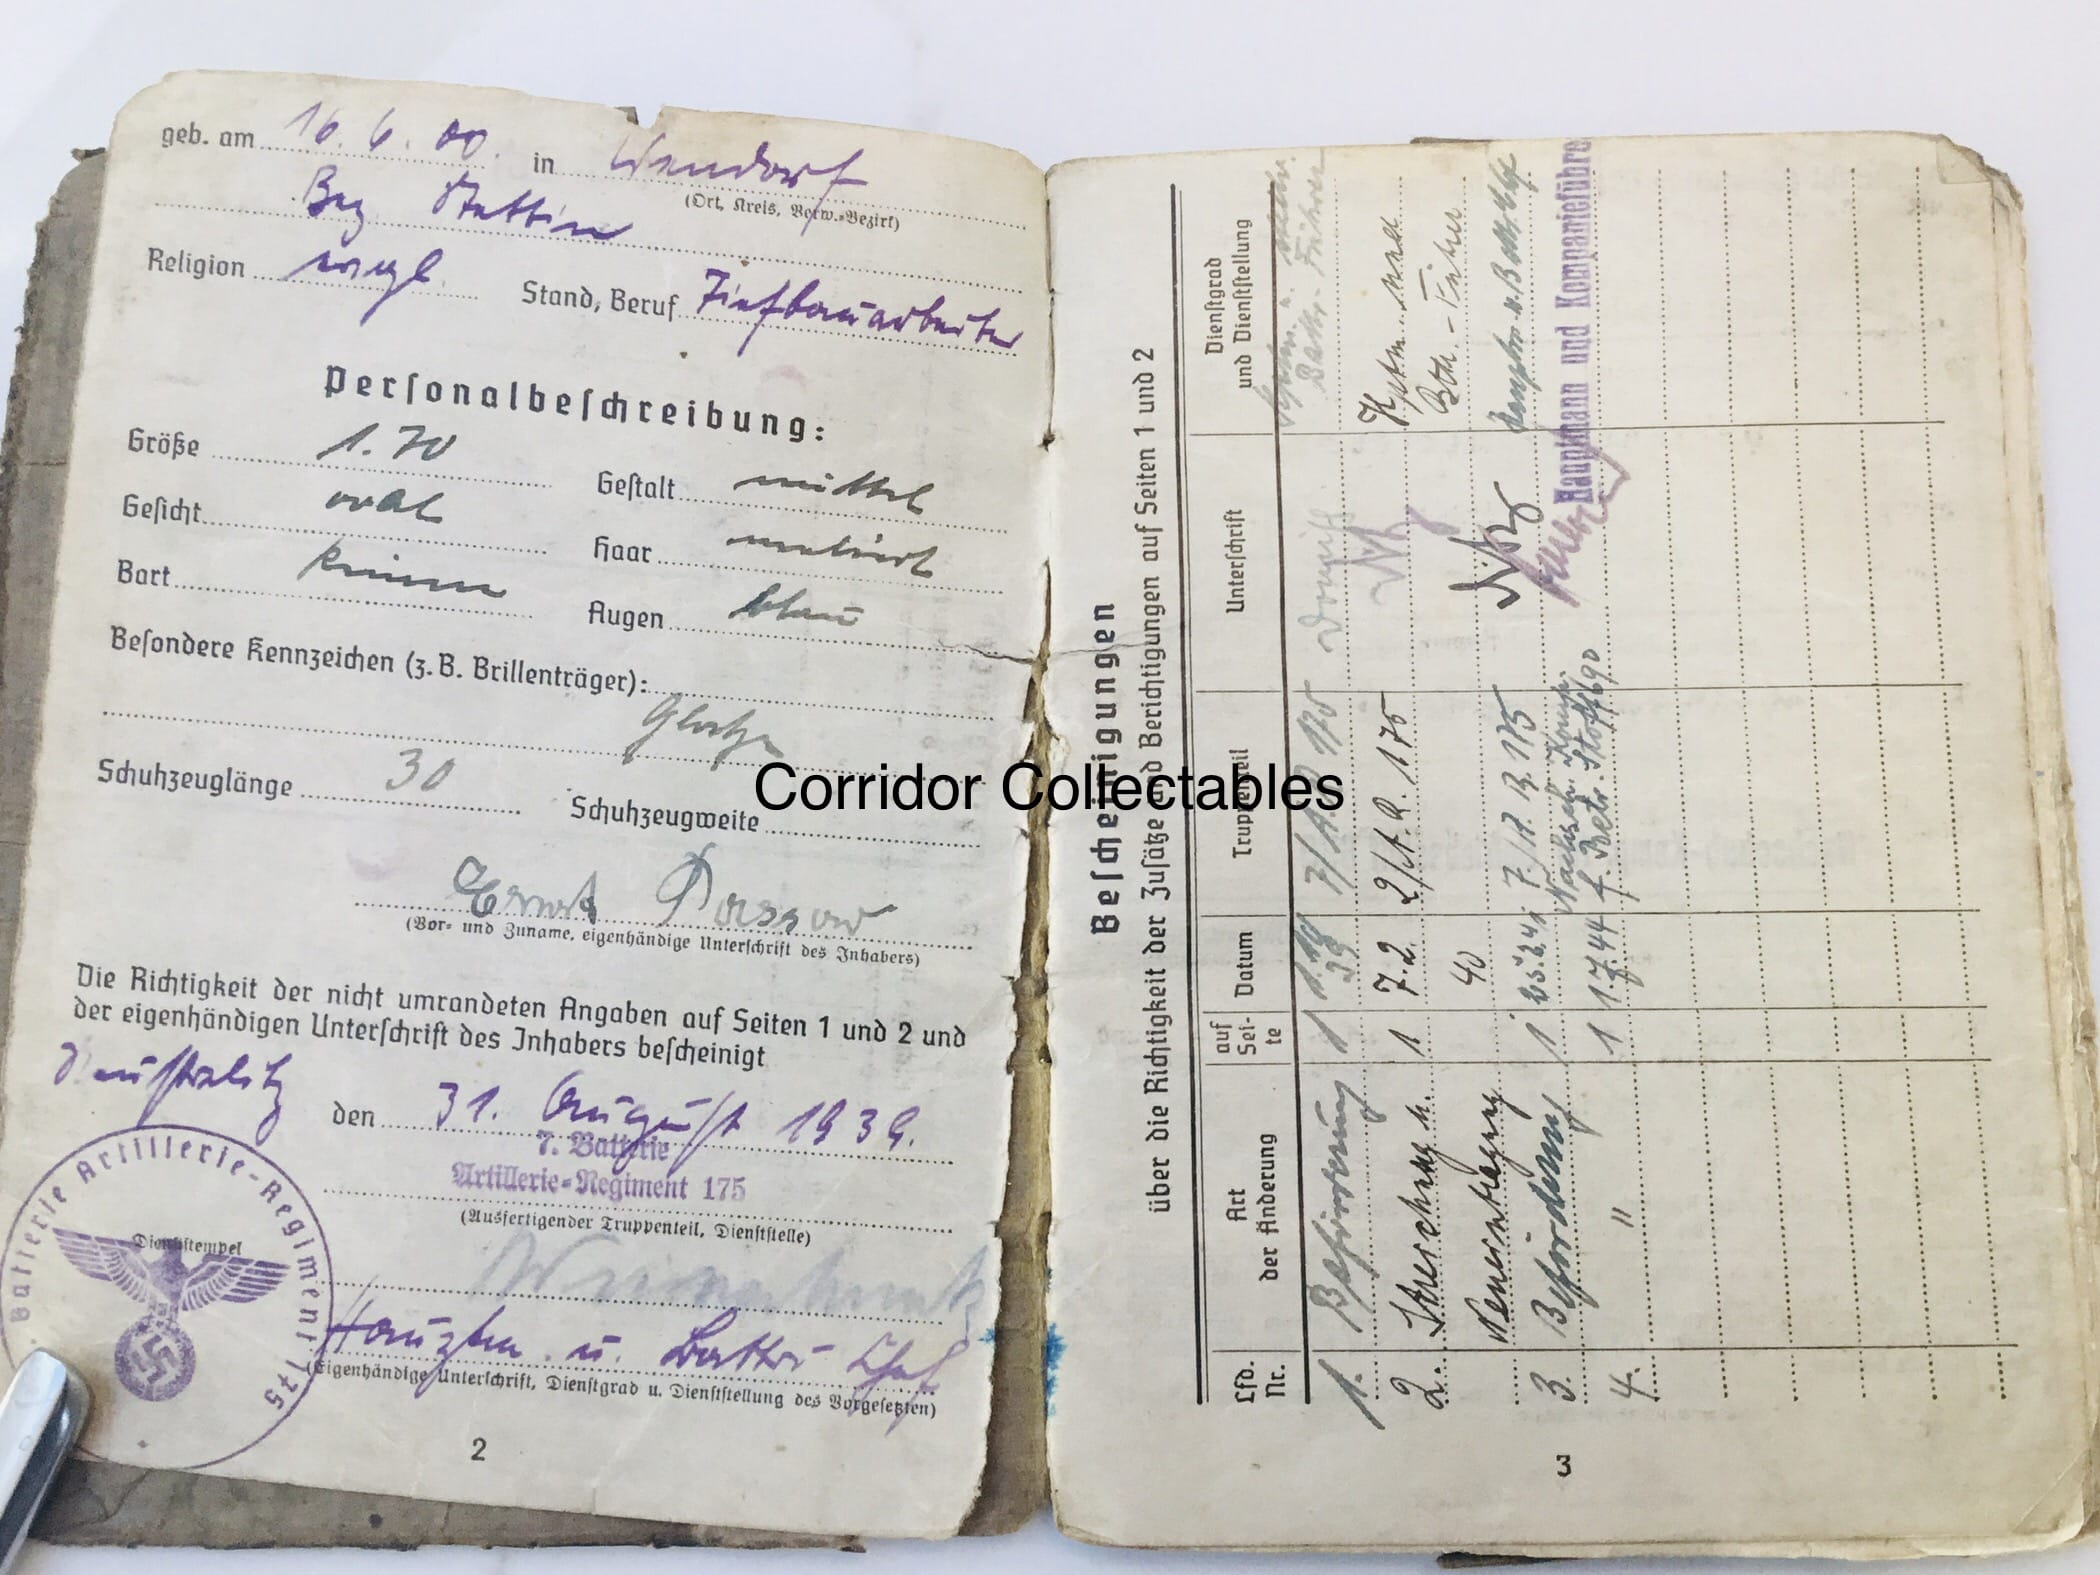 geb. am 16. 6. 00. in Wendorf
(Ort, Kreis, Verw.-Bezirk)
Bez. Stettin
Religion evgl. Stand, Beruf Tiefbauarbeiter
Personalbeschreibung:
Größe 1.70 Gestalt mittel
Gesicht oval Haar meliert
Bart keinen Augen blau
Besondere Kennzeichen (z. B. Brillenträger):
Glatze
Schuhzeuglänge 30 Schuhzeugweite
Ernst Passow
(Vor- und Zuname, eigenhändige Unterschrift des Inhabers)
Die Richtigkeit der nicht umrandeten Angaben auf Seiten 1 und 2 und
der eigenhändigen Unterschrift des Inhabers bescheinigt
den 31. August 1939.
7. Batterie
Artillerie-Regiment 175
(Ausfertigender Truppenteil, Dienststelle)
Batterie Artillerie-Regiment 175
Dienststempel
Hauptm. u. Battr.- Chef
(Eigenhändige Unterschrift, Dienstgrad u. Dienststellung des Vorgesetzten)
2
Corridor Collectables
Bescheinigungen
über die Richtigkeit der Zusätze und Berichtigungen auf Seiten 1 und 2
Lfd. Nr. Art der Änderung auf Sei-te Datum Truppenteil Unterschrift Dienstgrad und Dienststellung
1. Beförderung 1 39 7/A.R. 175 Battr.-Führer
2. 1 7.2. 2/A.R. 175 Hptm. und
Neueintragung 40 Bttr.-Führer
3. Beförderung 1 7/A.R. 175
4. " 1 1.7.44 Hauptmann und Kompanieführer
3